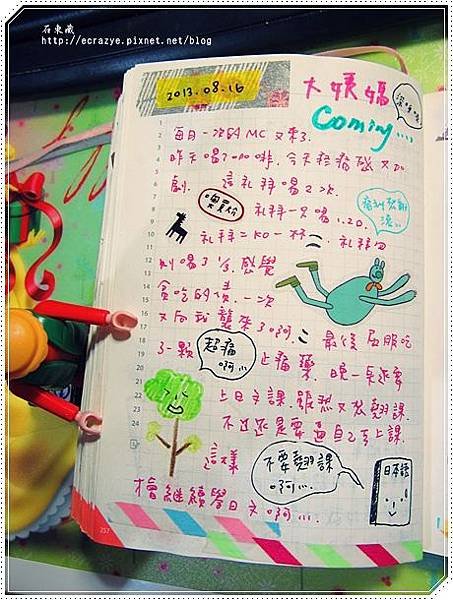 石東藏
http://ecrazye.pixnet.net/blog
2013.08.16
大姨媽
Coming....
每月一次的MC又來了.
昨天喝了咖啡,今天疼痛感又加
劇. 這禮拜喝2次.
禮拜一只喝1.20.
禮拜二KO一杯. 禮拜四
則喝了1/3. 感覺
貪吃的債, 一次
又向我襲來了啊. 最後屈服吃
了一顆 止痛藥. 晚一點還要
超痛
啊...
上日文課. 雖然又想翹課.
不過還是要逼自己去上課.
這樣
不要翹課
啊...
日本語
才會繼續學日文啊....
257